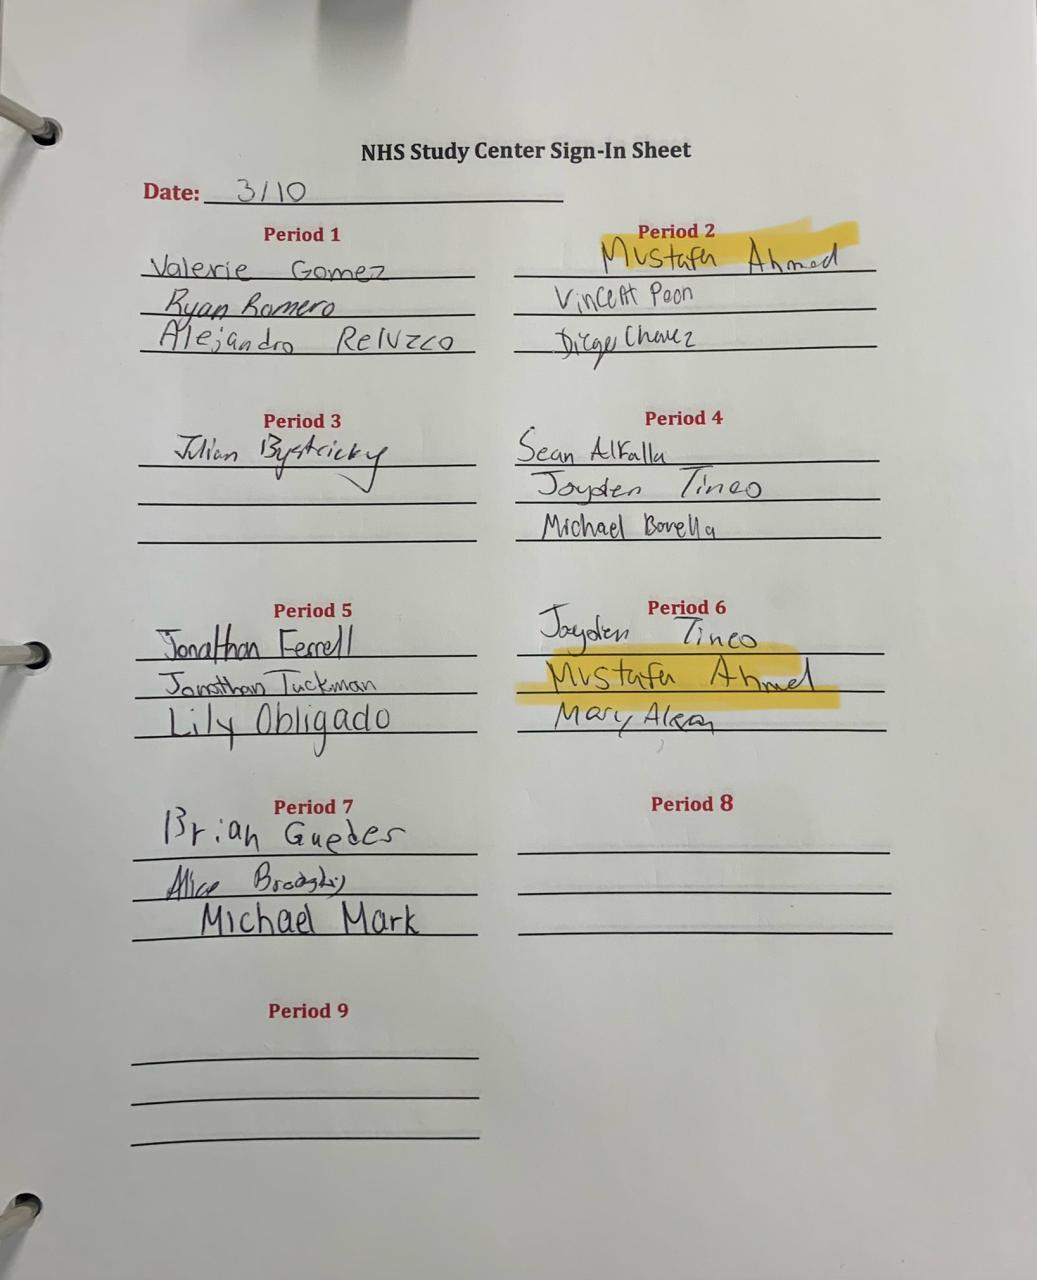 NHS Study Center Sign-In Sheet
Date: 3/10
Period 1
Valerie Gomez
Ryan Romero
Alejandro Reluzco
Period 2
Mustafa Ahmed
Vincent Peon
Diego Chavez
Period 3
Julian Bystricky
Period 4
Sean Alfalla
Jayden Tineo
Michael Borella
Period 5
Jonathan Ferrell
Jonathan Tuckman
Lily Obligado
Period 6
Jayden Tineo
Mustafa Ahmed
Mary
Period 7
Brian Guedes
Alice
Michael Mark
Period 8
Period 9